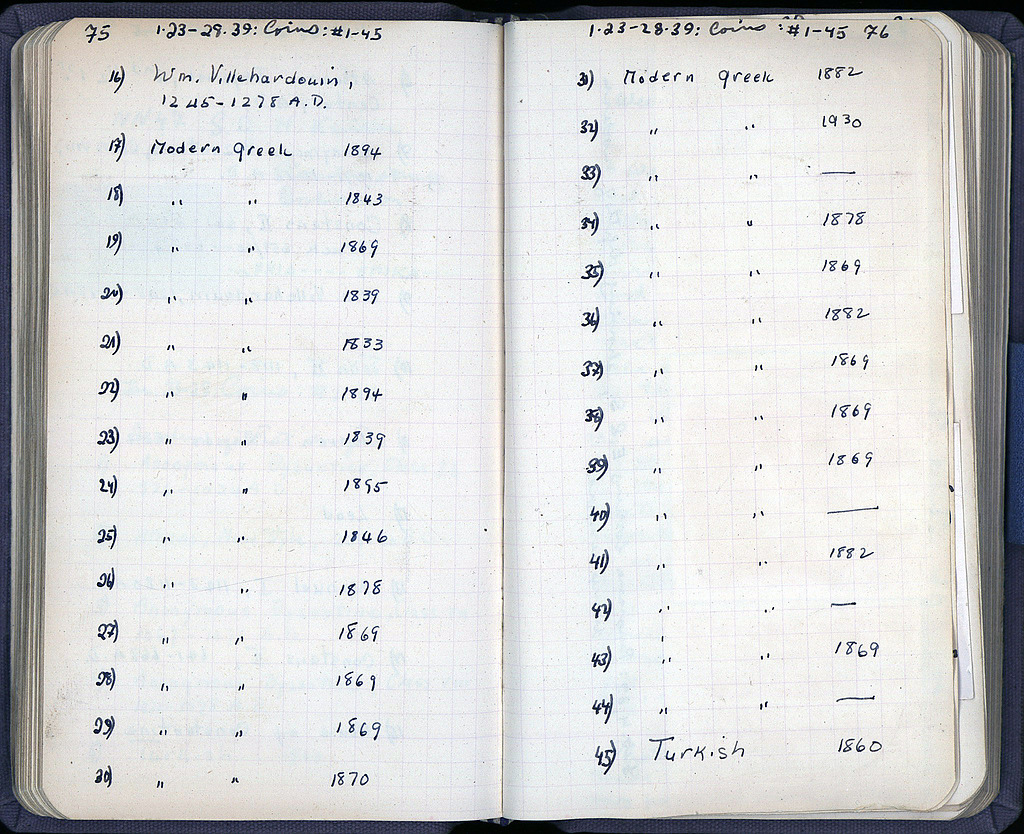 75 1·23-29·39: Coins: #1-45
16) Wm. Villehardouin,
1245-1278 A.D.
17) Modern Greek 1894
18) " " 1843
19) " " 1869
20) " " 1839
21) " " 1833
22) " " 1894
23) " " 1839
24) " " 1895
25) " " 1846
26) " " 1878
27) " " 1869
28) " " 1869
29) " " 1869
30) " " 1870
1·23-28·39: Coins: #1-45 76
31) Modern Greek 1882
32) " " 1930
33) " " —
34) " " 1878
35) " " 1869
36) " " 1882
37) " " 1869
38) " " 1869
39) " " 1869
40) " " —
41) " " 1882
42) " " —
43) " " 1869
44) " " —
45) Turkish 1860